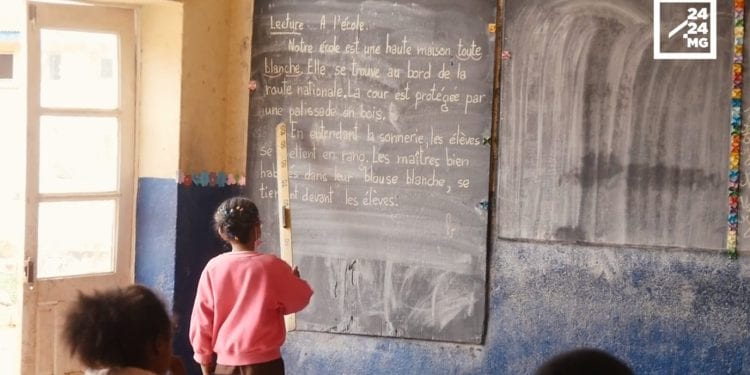 Lecture : A l'école.
Notre école est une haute maison toute
blanche. Elle se trouve au bord de la
route nationale. La cour est protégée par
une palissade en bois.
En entendant la sonnerie, les élèves
se ettent en rang. Les maîtres bien
hab és dans leur blouse blanche, se
tien nt devant les élèves.
24
24
MG